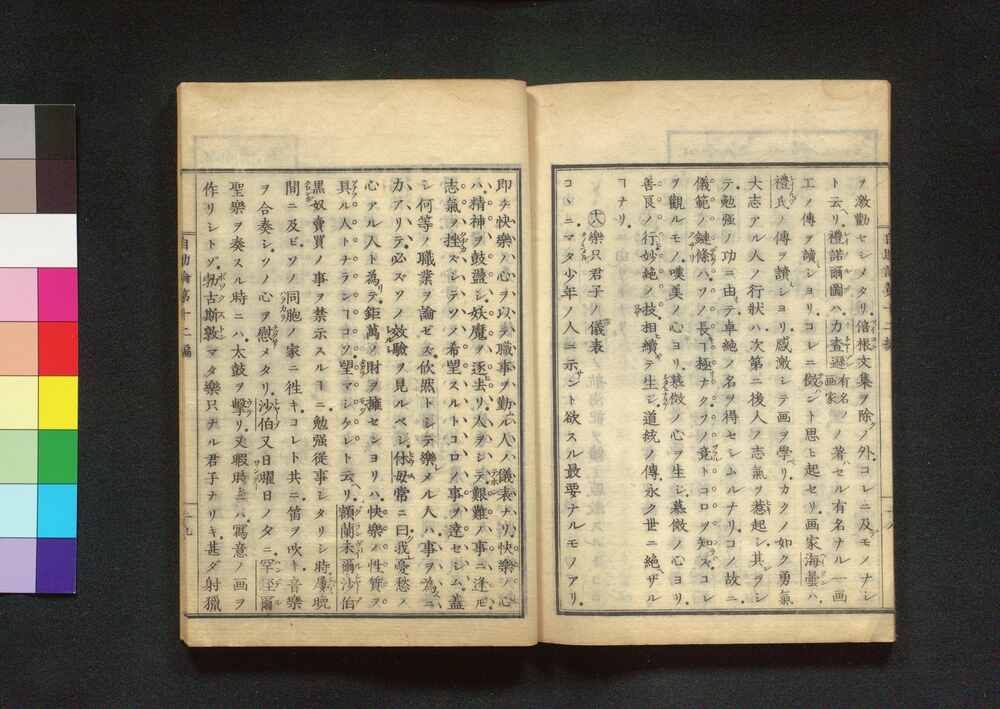 ヲ激勸セシメタリ倍根文集ヲ除ノ外コレニ及ブモノナシ
ト云リ禮諾爾圖ハ力査遜有名ノ画家ノ著セル有名ナル一画
工ノ傳ヲ讀シヨリコレニ傚ハント思ヒ起セリ画家海曇ハ
禮氏ノ傳ヲ讀シヨリ感激シテ画ヲ學リカクノ如ク勇氣
大志アル人ノ行狀ハ次第ニ後人ノ志氣ヲ惹起シ其ヲシ
テ勉强ノ功ニ由テ卓絶ノ名ヲ得セシムルナリコノ故ニ
儀範ノ鏈條ハソノ長ヿ極ナクソノ竟トコロヲ知ズコレ
ヲ觀ルモノ嘆美ノ心ヨリ慕傚ノ心ヲ生シ慕傚ノ心ヨリ
善良ノ行妙絶ノ技相續テ生シ道統ノ傳永ク世ニ絶ザル
ヿナリ
樂只君子ノ儀表
コヽニマタ少年ノ人ニ示シト欲スル最要ナルモノアリ
即チ快樂ノ心ヲ以テ職事ヲ勤ル人ハ儀表ナリ快樂ノ心
ハ精神ヲ鼓盪シ妖魔ヲ逐去リ人ヲシテ艱難ノ事ニ逢𪜈
志氣ヲ挫ズシテソノ希望スルトコロノ事ヲ達セシム蓋
シ何等ノ職業ヲ論ゼズ欣然トシテ樂メル人ハ事ヲ為ニ
力アリテ必ズソノ效驗ヲ見ルベシ休母常ニ曰我憂愁ノ
心アル人ト為リテ鉅萬ノ財ヲ擁センヨリハ快樂ノ性質ヲ
具ル人トナランヿコソ望マシケレト云リ額蘭未爾沙伯
黒奴賣買ノ事ヲ禁示スルヿニ勉强從事シタリシ時
間ニ及ビソノ同胞ノ家ニ徃キコレト共ニ笛ヲ吹キ音樂
ヲ合奏シソノ心ヲ慰メタリ沙伯又日曜日ノタニ罕
聖樂ヲ奏スル時ニハ太鼓ヲ擊リ又暇時ニハ寫意ノ画ヲ
作リシトゾ勃古斯敦マタ樂只ナル君子ナリキ甚ダ射獵
自助論第十二編